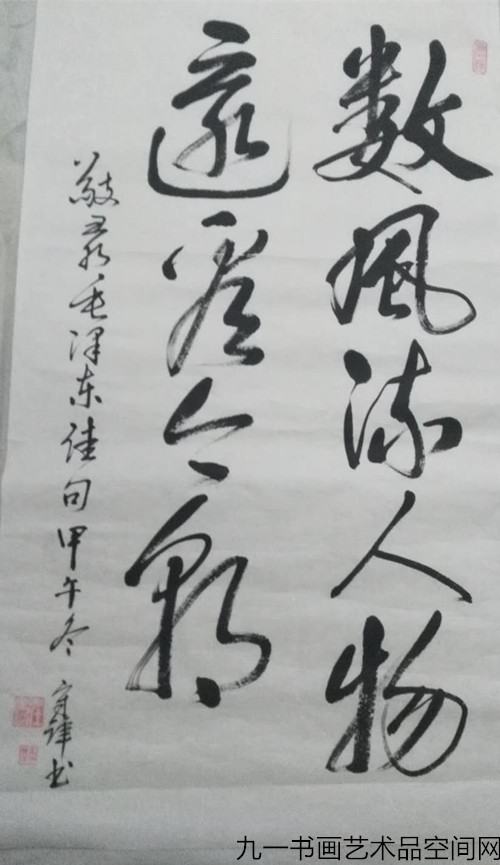 数風流人物
還看今朝
敬录毛泽东佳句甲午冬 书
九一书画艺术品空间网